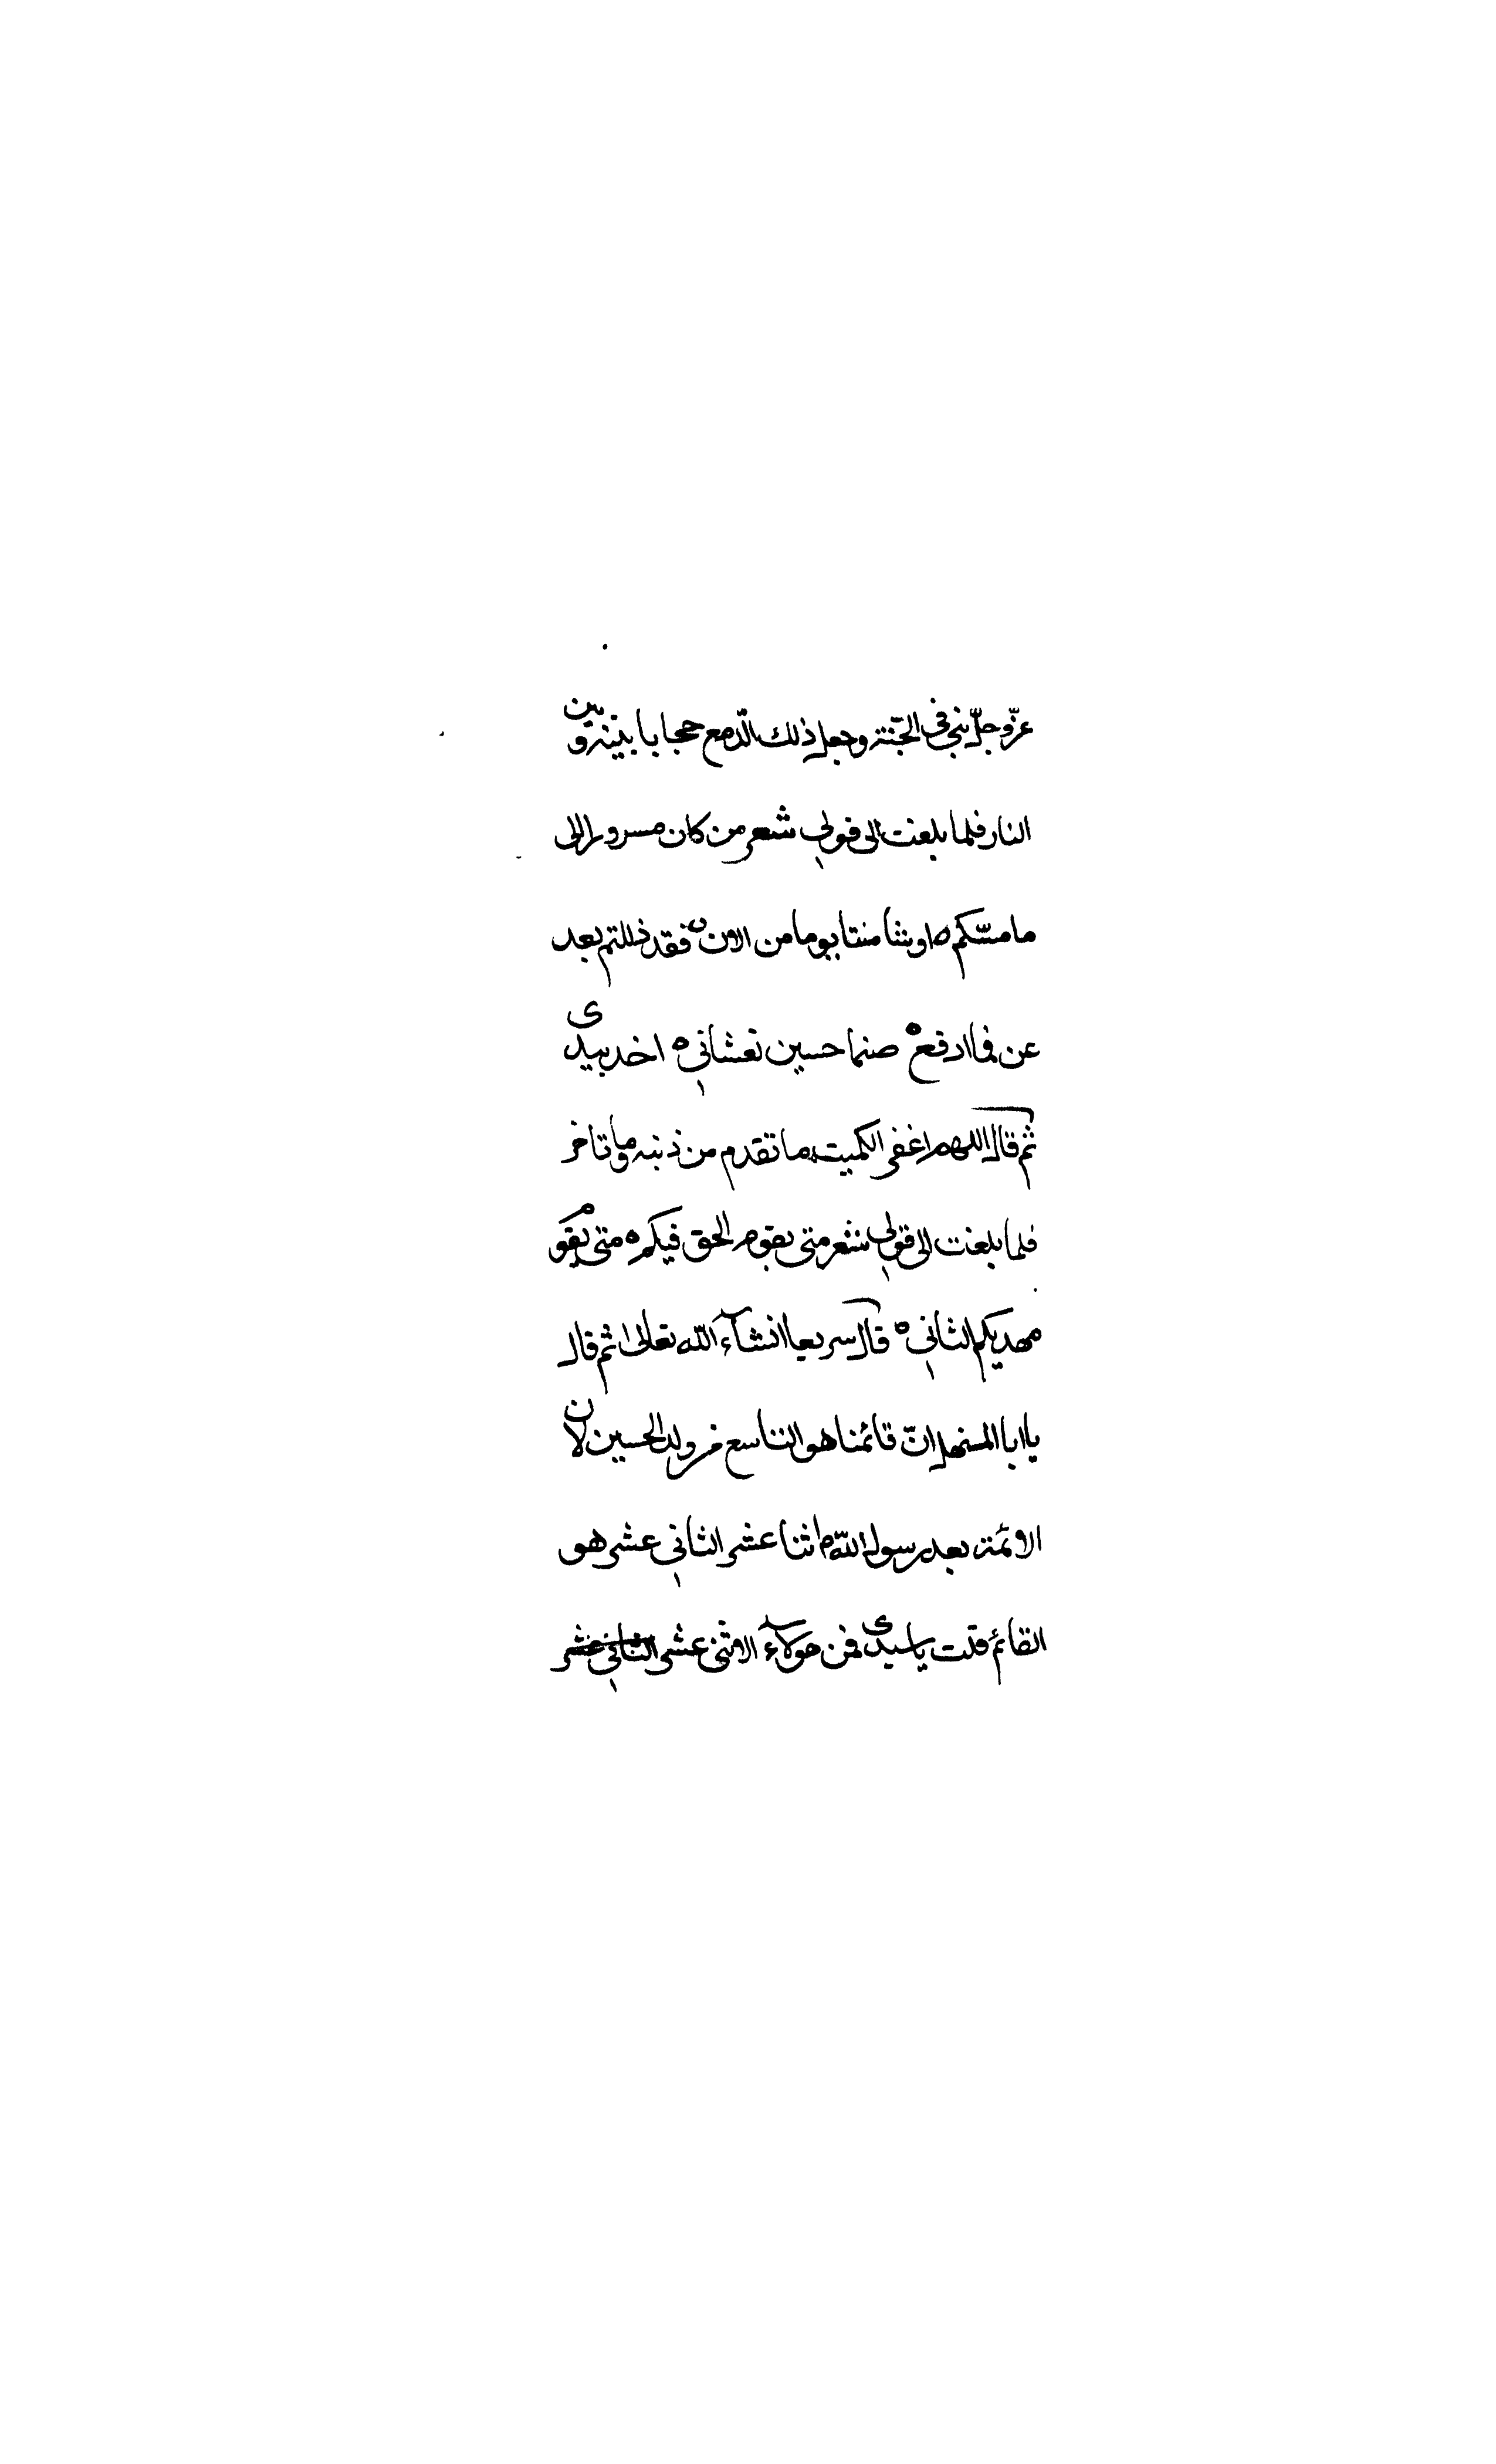 عزّ وجلّ بني في الجنّة وجعل ذلك الدّمع حجابا بينه وبين
النار فلما بلغت الى قولي شعر من كان مسرورا الى
ما مسّكم ه او شامتا يوما من الان ه فقد ذللتم بعد
عن فما ادفع ه ضيما حسين تغشاني ه اخذ بيدى
ثم قال اللهم اغفر الكميت ما تقدم من ذنبه وما تاخر
فلما بلغت الى قولي شعر متى يقوم الحق فيكم ه متى يقوم
مهديكم الثاني ه قال سريعا انشآء اللّه تعالى ثم قال
يا ابا المستهل انّ قائمنا هو التاسع من ولد الحسين لان
الائمة بعد رسول اللّه ص اثنا عشر الثاني عشر هو
القائم قلت يا سيدى فمن هولآء الاثنى عشر الثاني عشر